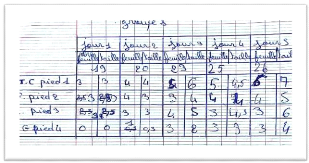 groupe 1
jour 1 jour 2 jour 3 jour 4 jour 5
feuille taille feuille taille feuille taille feuille taille feuille taille
19 20 23 25 26
T.C pied 1 3 4 4 5 6 5 4,5 6 7
pied 2 3 4 3 4 4 5
pied 3 3 3 4 5 3 4,3 3 6
pied 4 0 0 0,3 3 2 3 3 3 4